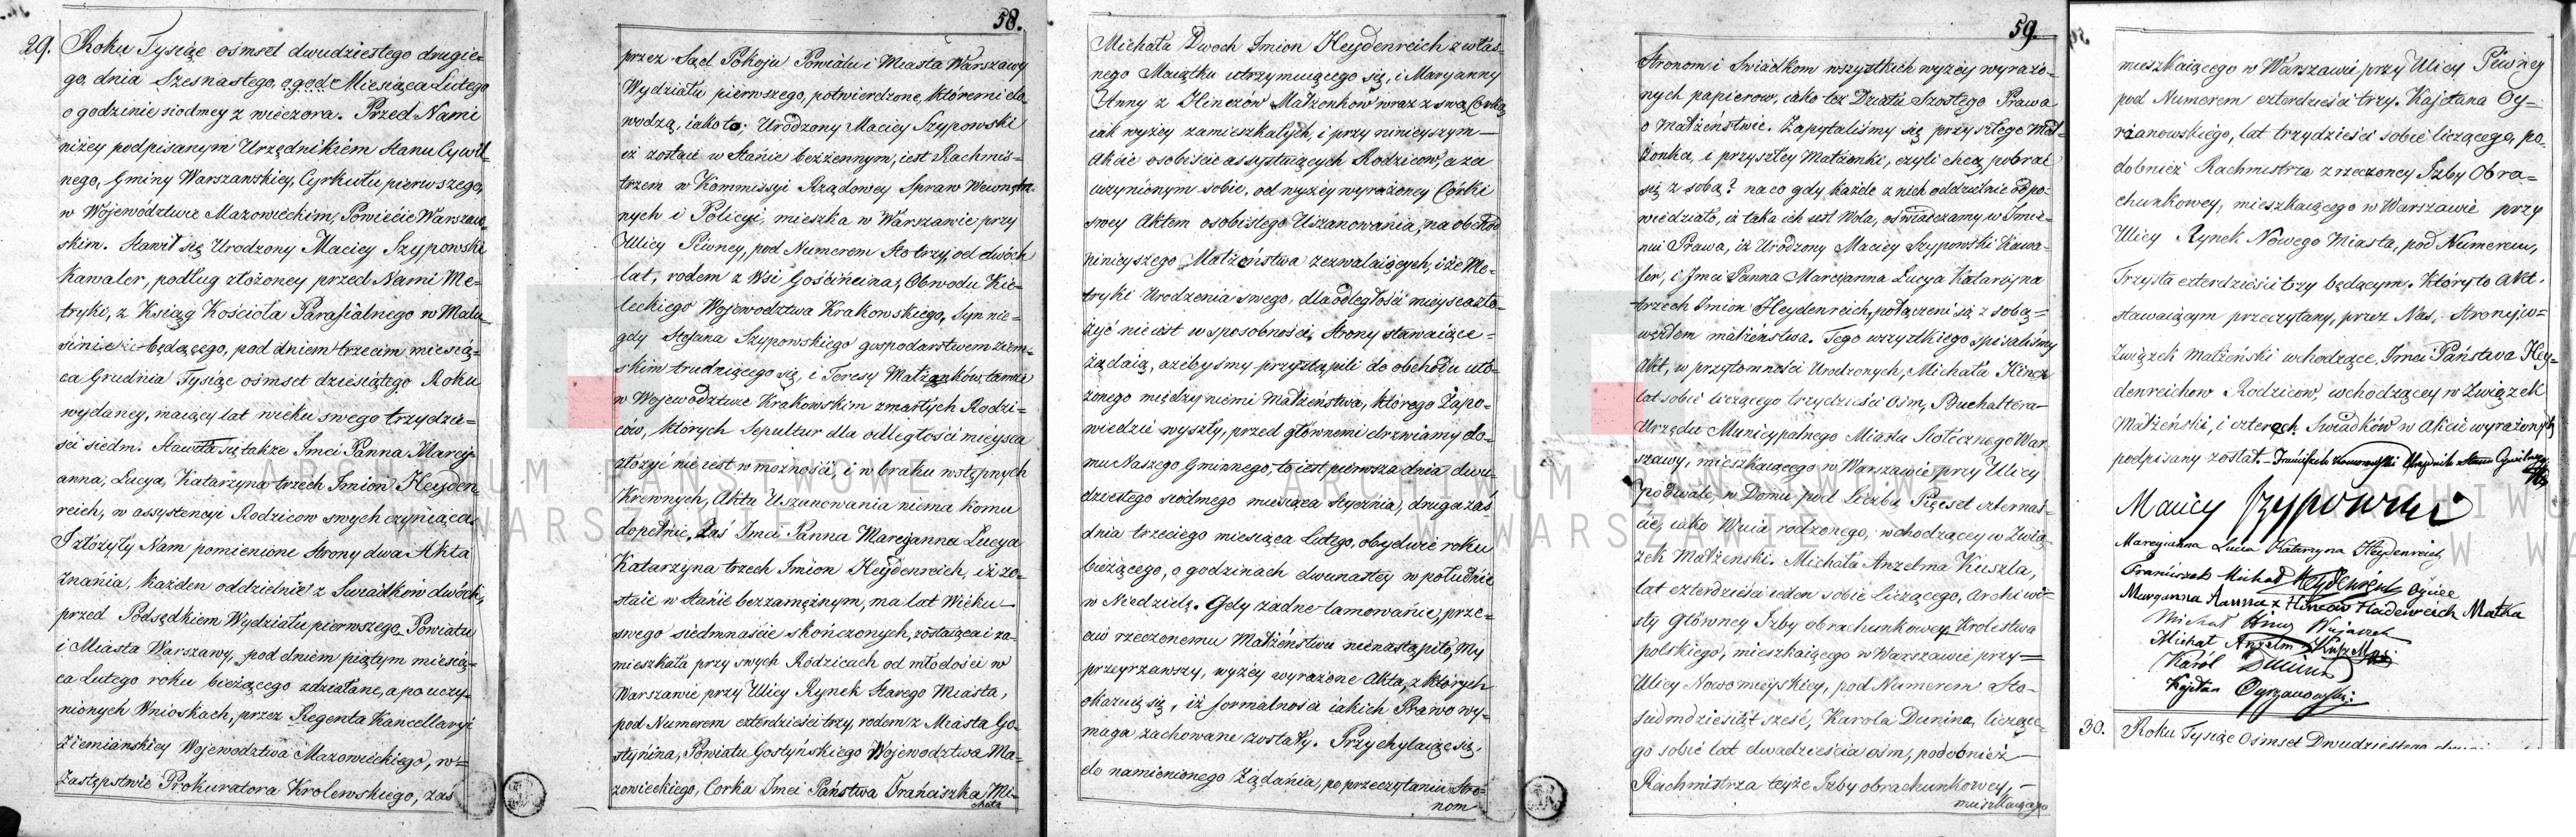 29. Roku Tysiąc ośmset dwudziestego drugie=
go, dnia Szesnastego, e.g.o.d. Miesiąca Lutego
o godzinie siodmey z wieczora. Przed Nami
niżey podpisanym Urzędnikiem Stanu Cywil=
nego, Gminy Warszawskiey, Cyrkułu pierwszego,
w Województwie Mazowieckim, Powiecie Warszaw=
skim. Stawił się Urodzony Maciey Szypowski
Kawaler, podług złożoney przed Nami Me=
tryki, z Ksiąg Kościoła Parafialnego w Malu=
będącego, pod dniem trzecim miesią=
ca Grudnia Tysiąc ośmset dziesiątego Roku
wydaney, maiący lat wieku swego trzydzie=
ści siedm. Stawiła się także Imci Panna Marcy=
anna, Lucya, Katarzyna trzech Imion Heyden=
reich, w assystencyi Rodzicow swych czyniąca.
I złożyły Nam pomienione Strony dwa Akta
Znania, każden oddzielnie z Swiadkow dwóch,
przed Podsędkiem Wydziału pierwszego Powiatu
i Miasta Warszawy, pod dniem piątym miesią=
ca Lutego roku bieżącego zdziałane, a po uczy=
nionych Wnioskach, przez Regenta Kancellaryi
Ziemiańskiey Województwa Mazowieckiego, w=
Zastępstwie Prokuratora Krolewskiego, zaś
58.
przez Sąd Pokoju Powiatu i Miasta Warszawy
Wydziału pierwszego, potwierdzone, któremi do=
wodzą, iako to; Urodzony Maciey Szypowski
iż zostaie w Stanie bezżennym, iest Rachmis=
trzem w Kommissyi Rządowey Spraw Wewnętrz=
nych i Policyi, mieszka w Warszawie przy
Ulicy Piwney, pod Numerem Sto trzy, od dwóch
lat, rodem z Wsi Gościńcina, Obwodu Kie=
leckiego Województwa Krakowskiego, Syn nie=
gdy Stefana Szypowskiego gospodarstwem ziem=
skim trudniącego się, i Teresy Małżonków tamże
w Województwie Krakowskim zmarłych Rodzi=
ców, których Sepultur dla odległości mieysca
złożyć nie iest w możności, i w braku wstępnych
Krewnych, Aktu Uszanowania niema komu
dopełnić. Zaś Imci Panna Marcyanna Lucya
Katarzyna trzech Imion Heydenreich, iż zo=
staie w Stanie bezzamężnym, ma lat Wieku
swego siedmnaście skończonych, zostaiąca i za=
mieszkała przy swych Rodzicach od młodości w
Warszawie przy Ulicy Rynek Starego Miasta,
pod Numerem czterdzieści trzy, rodem z Miasta Go=
stynina, Powiatu Gostyńskiego Województwa Ma=
zowieckiego, Corka Imci Państwa Franciszka Mi=
chała
Michała Dwoch Imion Heydenreich z włas=
nego Maiątku utrzymuiącego się, i Maryanny
Anny z Hinczów Małżonkow wraz z swą Corką
iak wyżey zamieszkałych, i przy ninieyszym
Akcie osobiście assystuiących Rodzicow, a za
uczynionym sobie, od wyżey wyrażoney Córki
swey Aktem osobistego Uszanowania, na obchód
ninieyszego Małżeństwa zezwalaiących, iż że Me=
tryki Urodzenia swego, dla odległości mieysca zło=
żyć nie iest w sposobności. Strony stawaiące
żądaią, ażebyśmy przystąpili do obchodu uło=
żonego między niemi Małżeństwa, którego Zapo=
wiedzi wyszły, przed głównemi drzwiamy do=
mu Naszego Gminnego, to iest pierwsza dnia dwu=
dziestego siódmego miesiąca Stycznia, druga zaś
dnia trzeciego miesiąca Lutego, obydwie roku
bieżącego, o godzinach dwunastey w południe
w Niedzielę. Gdy żadne tamowanie, prze=
ciw rzeczonemu Małżeństwu nienastąpiło, My
przeyrzawszy, wyżey wyrażone Akta, z których
okazuie się, iż formalności iakich Prawo wy=
maga zachowane zostały. Przychylaiąc się,
do namienionego Żądania, po przeczytaniu Stro=
nom
59.
Stronom i Swiadkom wszystkich wyżey wyrażo=
nych papierow, iako też Działu Szóstego Prawa
o Małżeństwie. Zapytaliśmy się przyszłego Mał=
żonka, i przyszłey Małżonki, czyli chcą pobrać
się z sobą? na co gdy każde z nich oddzielnie odpo=
wiedziało, iż taka ich iest Wola, oświadczamy w Imie=
niu Prawa, iż Urodzony Maciey Szypowski Kawa=
ler, i Imci Panna Marcyanna Lucya Katarzyna
trzech Imion Heydenreich, połączeni są z sobą=
węzłem małżeństwa. Tego wszystkiego spisaliśmy
Akt, w przytomności Urodzonych, Michała Hincz
lat sobie liczącego trzydzieści ośm, Buchaltera
Urzędu Municypalnego Miasta Stołecznego War=
szawy, mieszkaiącego w Warszawie przy Ulicy
Podwale, w Domu pod Liczbą Pięcset czternaś=
cie, iako Wuia rodzonego, wchodzącey w Zwią=
zek Małżenski. Michała Anzelma Kuszla,
lat czterdzieści ieden sobie liczącego, Archiwi=
sty Główney Izby obrachunkowey Krolestwa
polskiego, mieszkaiącego w Warszawie przy=
Ulicy Nowomieyskiey, pod Numerem Sto=
siedmdziesiąt sześć, Karola Dunina, liczące=
go sobie lat dwadzieścia ośm, podobnież
Rachmistrza teyże Izby obrachunkowey,
mieszkaiącego
mieszkaiącego w Warszawie przy Ulicy Piwney
pod Numerem czterdzieści trzy. Kajetana Cy=
rżanowskiego, lat trzydzieści sobie liczącego, po=
dobnież Rachmistrza z rzeczoney Izby Obra=
chunkowey, mieszkaiącego w Warszawie przy
Ulicy Rynek Nowego Miasta, pod Numerem,
Trzysta czterdzieści trzy będącym. Który to Akt,
stawaiącym przeczytany, przez Nas, Strony w=
Związek małżeński wchodzące, Imci Państwa Hey=
denreichow Rodzicow, wchodzącey w Związek
Małżeński, i czterech Swiadków w Akcie wyrażonych
podpisany został. Urzędnik Stanu Cywilnego
Maciey Szypowski
Marcyanna Lucia Katarzyna Heydenreich
Franciszek Michał Heydenreich Oyciec
Maryanna Anna z Hinców Haidenreich Matka
Michał Hincz
Michał Anzelm Kuszell
Karól Dunin
Kajetan Cyrzanowski
30. Roku Tysiąc Ośmset Dwudziestego
ARCHIWUM PAŃSTWOWE
W WARSZAWIE